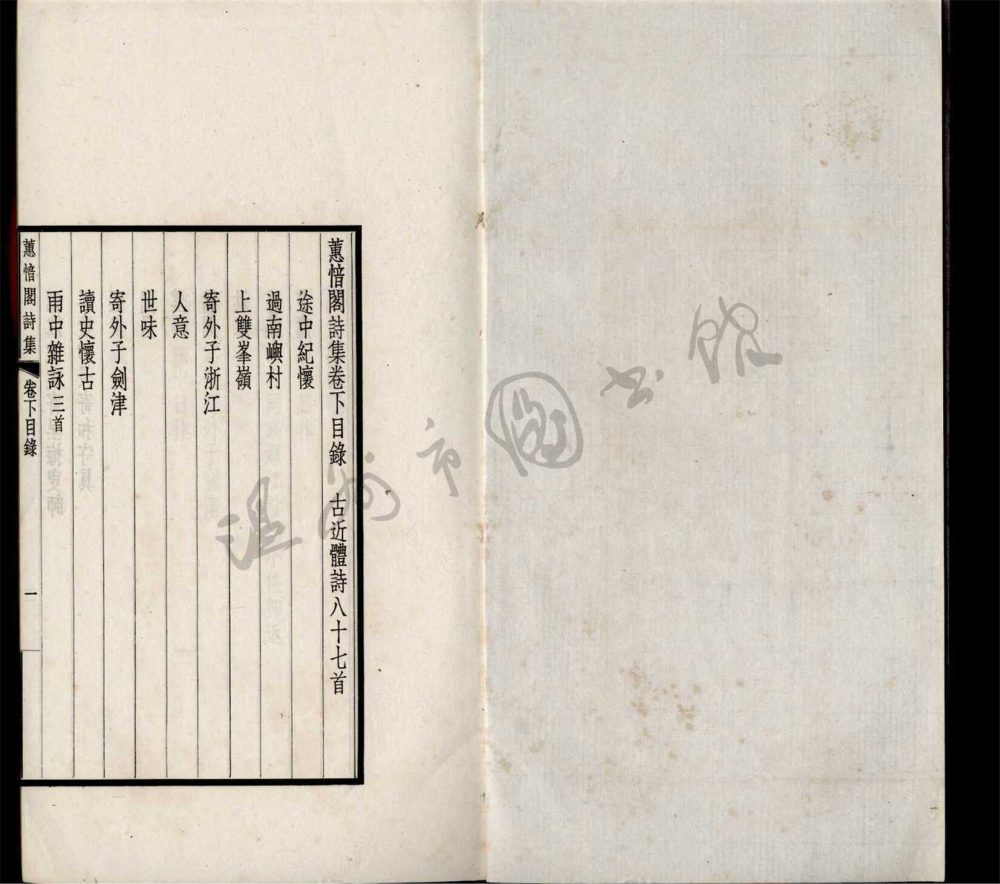 蕙愔閣詩集卷下目錄　古近體詩八十七首
途中紀懷
過南嶼村
上雙峯嶺
寄外子浙江
人意
世味
寄外子劍津
讀史懷古
雨中雜詠三首
蕙愔閣詩集　卷下目錄　一
溫州市圖書館